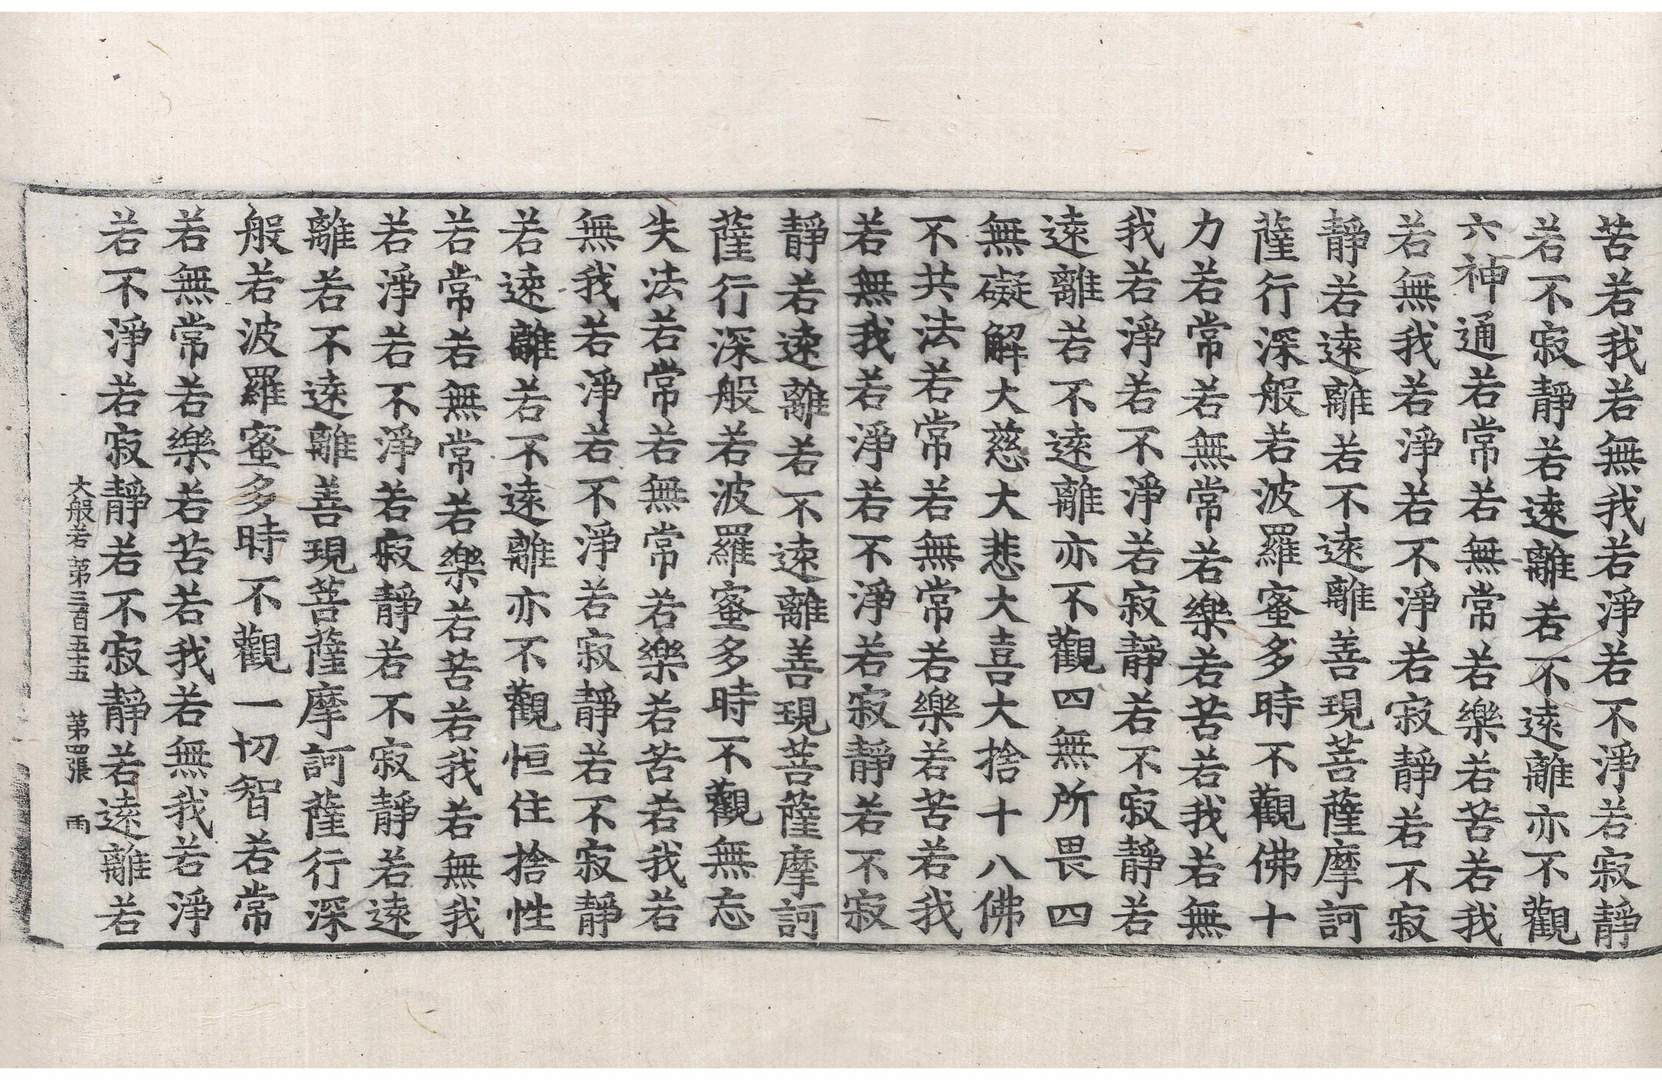 苦若我若無我若淨若不淨若寂靜
若不寂靜若遠離若不遠離亦不觀
六神通若常若無常若樂若苦若我
若無我若淨若不淨若寂靜若不寂
靜若遠離若不遠離善現菩薩摩訶
薩行深般若波羅蜜多時不觀佛十
力若常若無常若樂若苦若我若無
我若淨若不淨若寂靜若不寂靜若
遠離若不遠離亦不觀四無所畏四
無礙解大慈大悲大喜大捨十八佛
不共法若常若無常若樂若苦若我
若無我若淨若不淨若寂靜若不寂
靜若遠離若不遠離善現菩薩摩訶
薩行深般若波羅蜜多時不觀無忘
失法若常若無常若樂若苦若我若
無我若淨若不淨若寂靜若不寂靜
若遠離若不遠離亦不觀恒住捨性
若常若無常若樂若苦若我若無我
若淨若不淨若寂靜若不寂靜若遠
離若不遠離善現菩薩摩訶薩行深
般若波羅蜜多時不觀一切智若常
若無常若樂若苦若我若無我若淨
若不淨若寂靜若不寂靜若遠離若
大般若 第三百五十五 第四張 雨